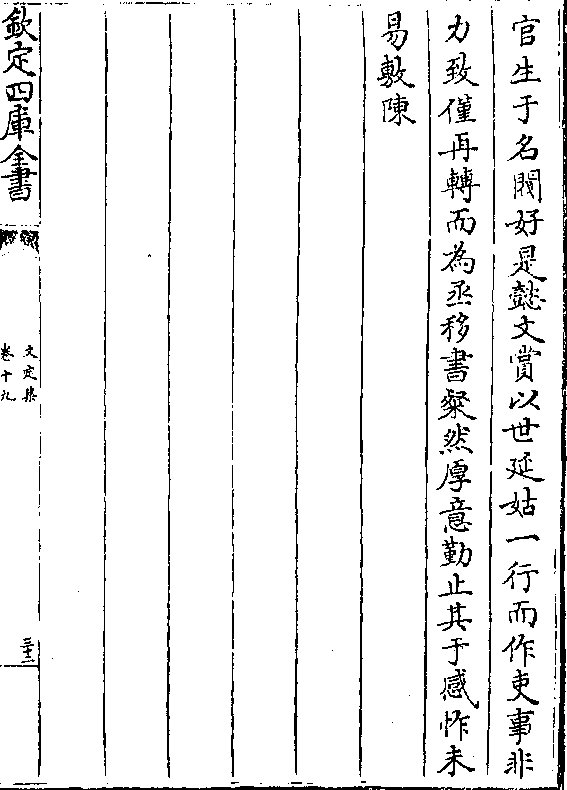 官生于名閥好是懿文賞以世延姑一行而作吏事非
力致僅再轉而為丞移書粲然厚意勤止其于感怍未
易敷陳
欽定四庫全書
文定集
卷十九
三十二